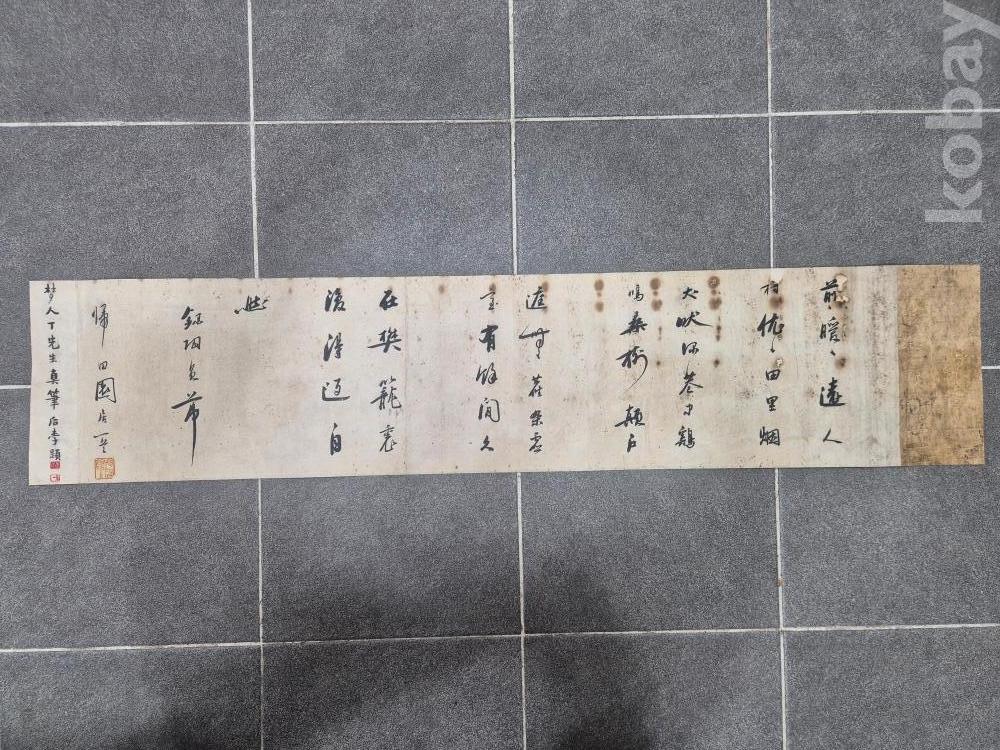 前曖々遠人
村依々田里烟
犬吠深巷中鷄
鳴桑樹顛戶
庭無塵雜虛
室有餘閒久
在樊籠裏
復得返自
然
錄陶靖節
歸田園居一首
梦人丁先生真筆后李題
kobay